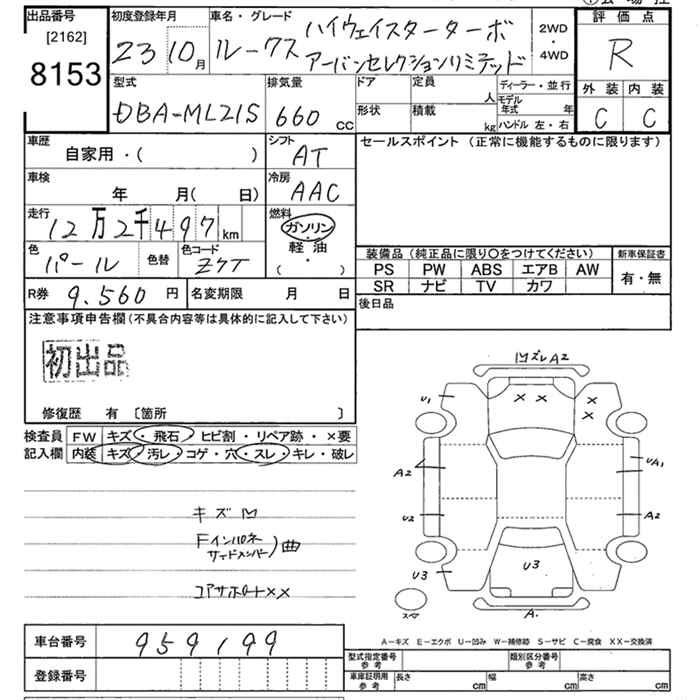 出品番号
[2162]
8153
初度登録年月
23 10月
車名・グレード
ハイウェイスターターボ
ルークス アーバンセレクションリミテッド
2WD
・
4WD
評価点
R
外装 内装
C C
型式
DBA-ML21S
排気量
660 CC
ドア
定員
人
形状
積載
kg
ディーラー・並行
モデル年式 年
ハンドル 左・右
車歴
自家用・( )
シフト
AT
車検
年 月( 日)
冷房
AAC
走行
12万2千497km
燃料
ガソリン
・
軽油
・
( )
色
パール
色替
色コード
ZケT
R券 9.560円
名変期限 月 日
セールスポイント (正常に機能するものに限ります)
装備品 (純正品に限り○をつけてください)
新車保証書
PS PW ABS エアB AW
SR ナビ TV カワ
有・無
後日品
注意事項申告欄(不具合内容等は具体的に記入して下さい)
初出品
修復歴 有 〔箇所 〕
検査員記入欄
FW キズ・飛石・ヒビ割・リペア跡・×要
内装 キズ・汚レ・コゲ・穴・スレ・キレ・破レ
キズ凹
Fインパネ
サイドメンバー)曲
コアサポート××
凹ズレA2
U1
× ×
×
×
A2
UA1
U2
A2
U3
U3
スペア
A.
A-キズ E-エクボ U-凹み W-補修跡 S-サビ C-腐食 XX-交換済
車台番号 959199
登録番号
型式指定番号
参考
類別区分番号
参考
車庫証明用
参考
長さ cm 幅 cm 高さ cm